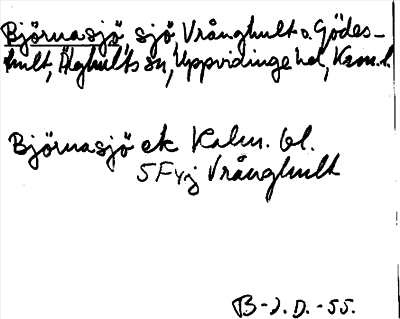 Björnasjö sjö Vrånghult o. Gödes-
hult, Älghults sn, Uppvidinge hd, Krm. l.
Björnasjö ek Kalm. bl.
5F yj Vrånghult
B-J. D. -55.